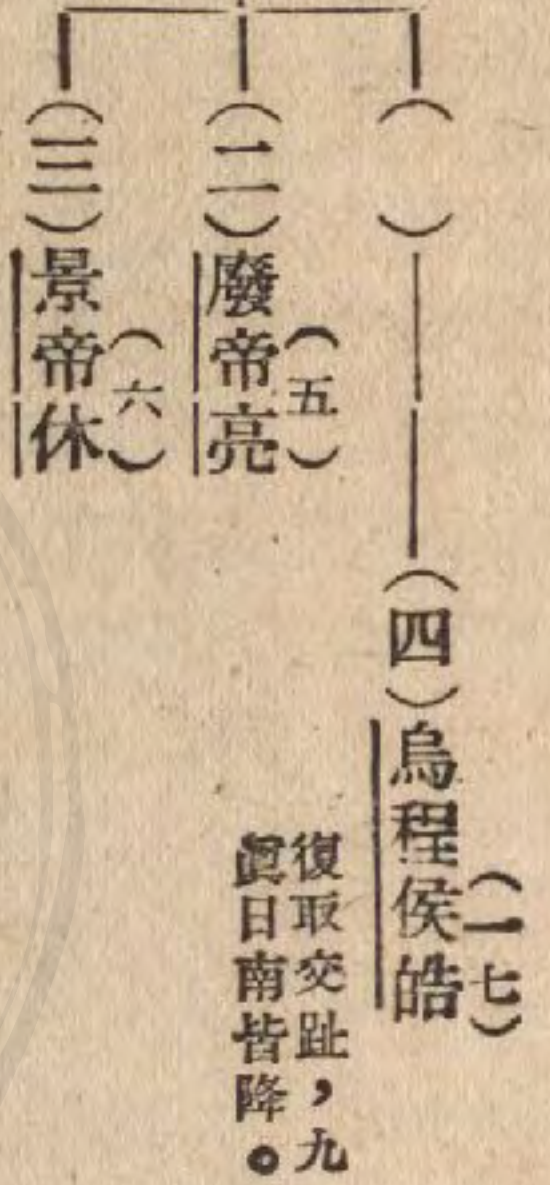 （　）
（四）烏程侯皓
（一七）
復取交趾，九
眞日南皆降。
（二）廢帝亮
（五）
（三）景帝休
（六）